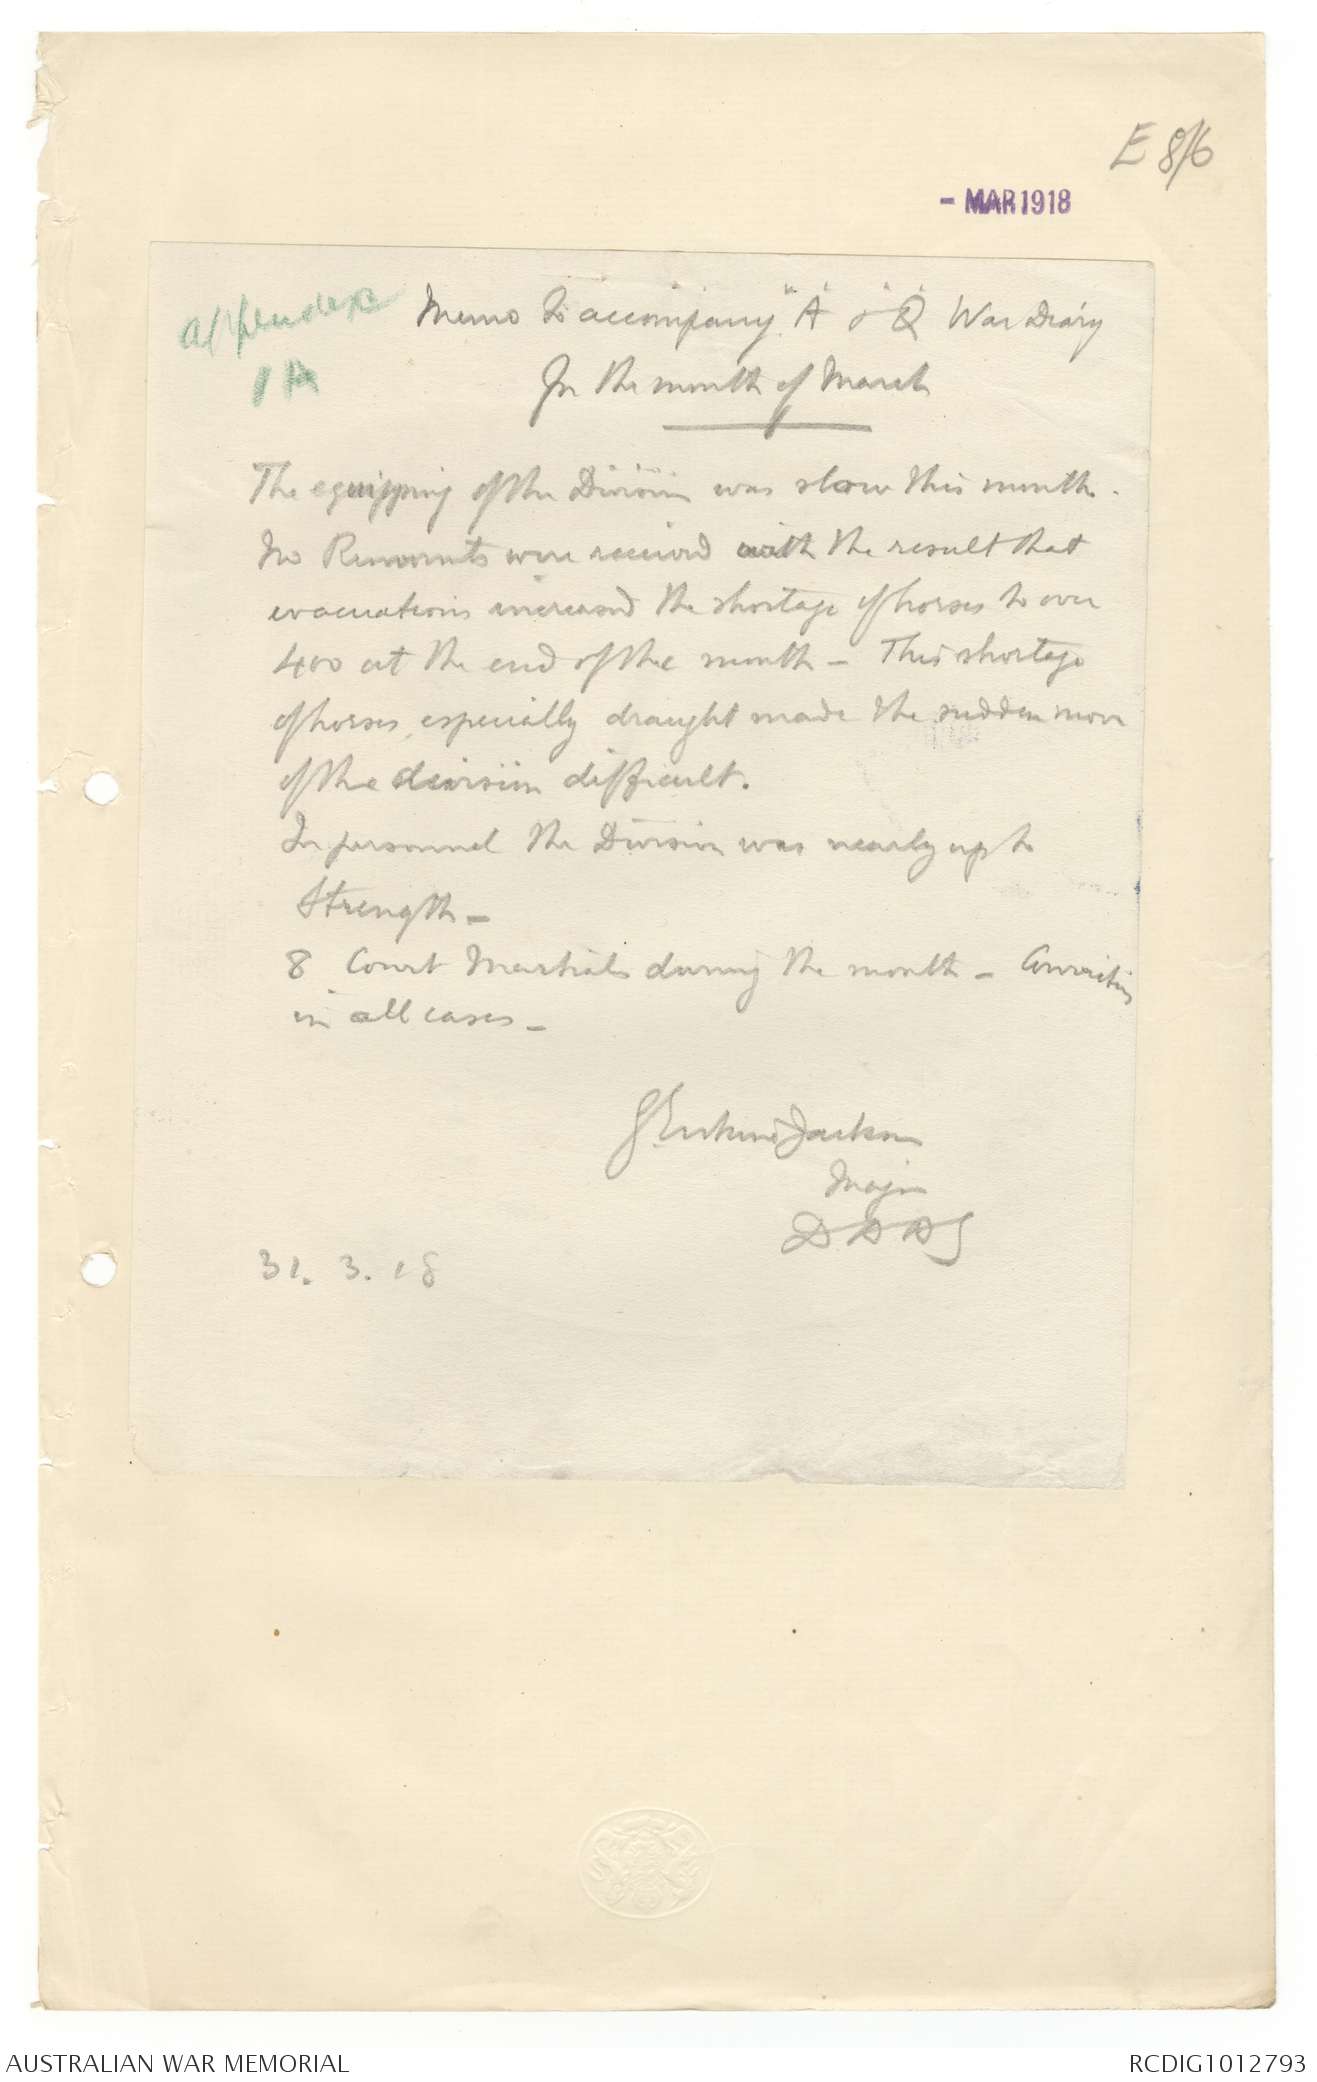 E 8/6
- MAR 1918
Appendix
1A
Memo to accompany "A" & "Q" War Diary
for the month of March
The equipping of the Division was slow this month.
No Remounts were received with the result that
evacuations increased the shortage of horses to over
400 at the end of the month - This shortage
of horses, especially draught made the sudden move
of the division difficult.
In personnel the Division was nearly up to
Strength -
8 Court Martials during the month - Conviction
in all cases -
Jackson
Major
31. 3. 18
AUSTRALIAN WAR MEMORIAL
RCDIG1012793